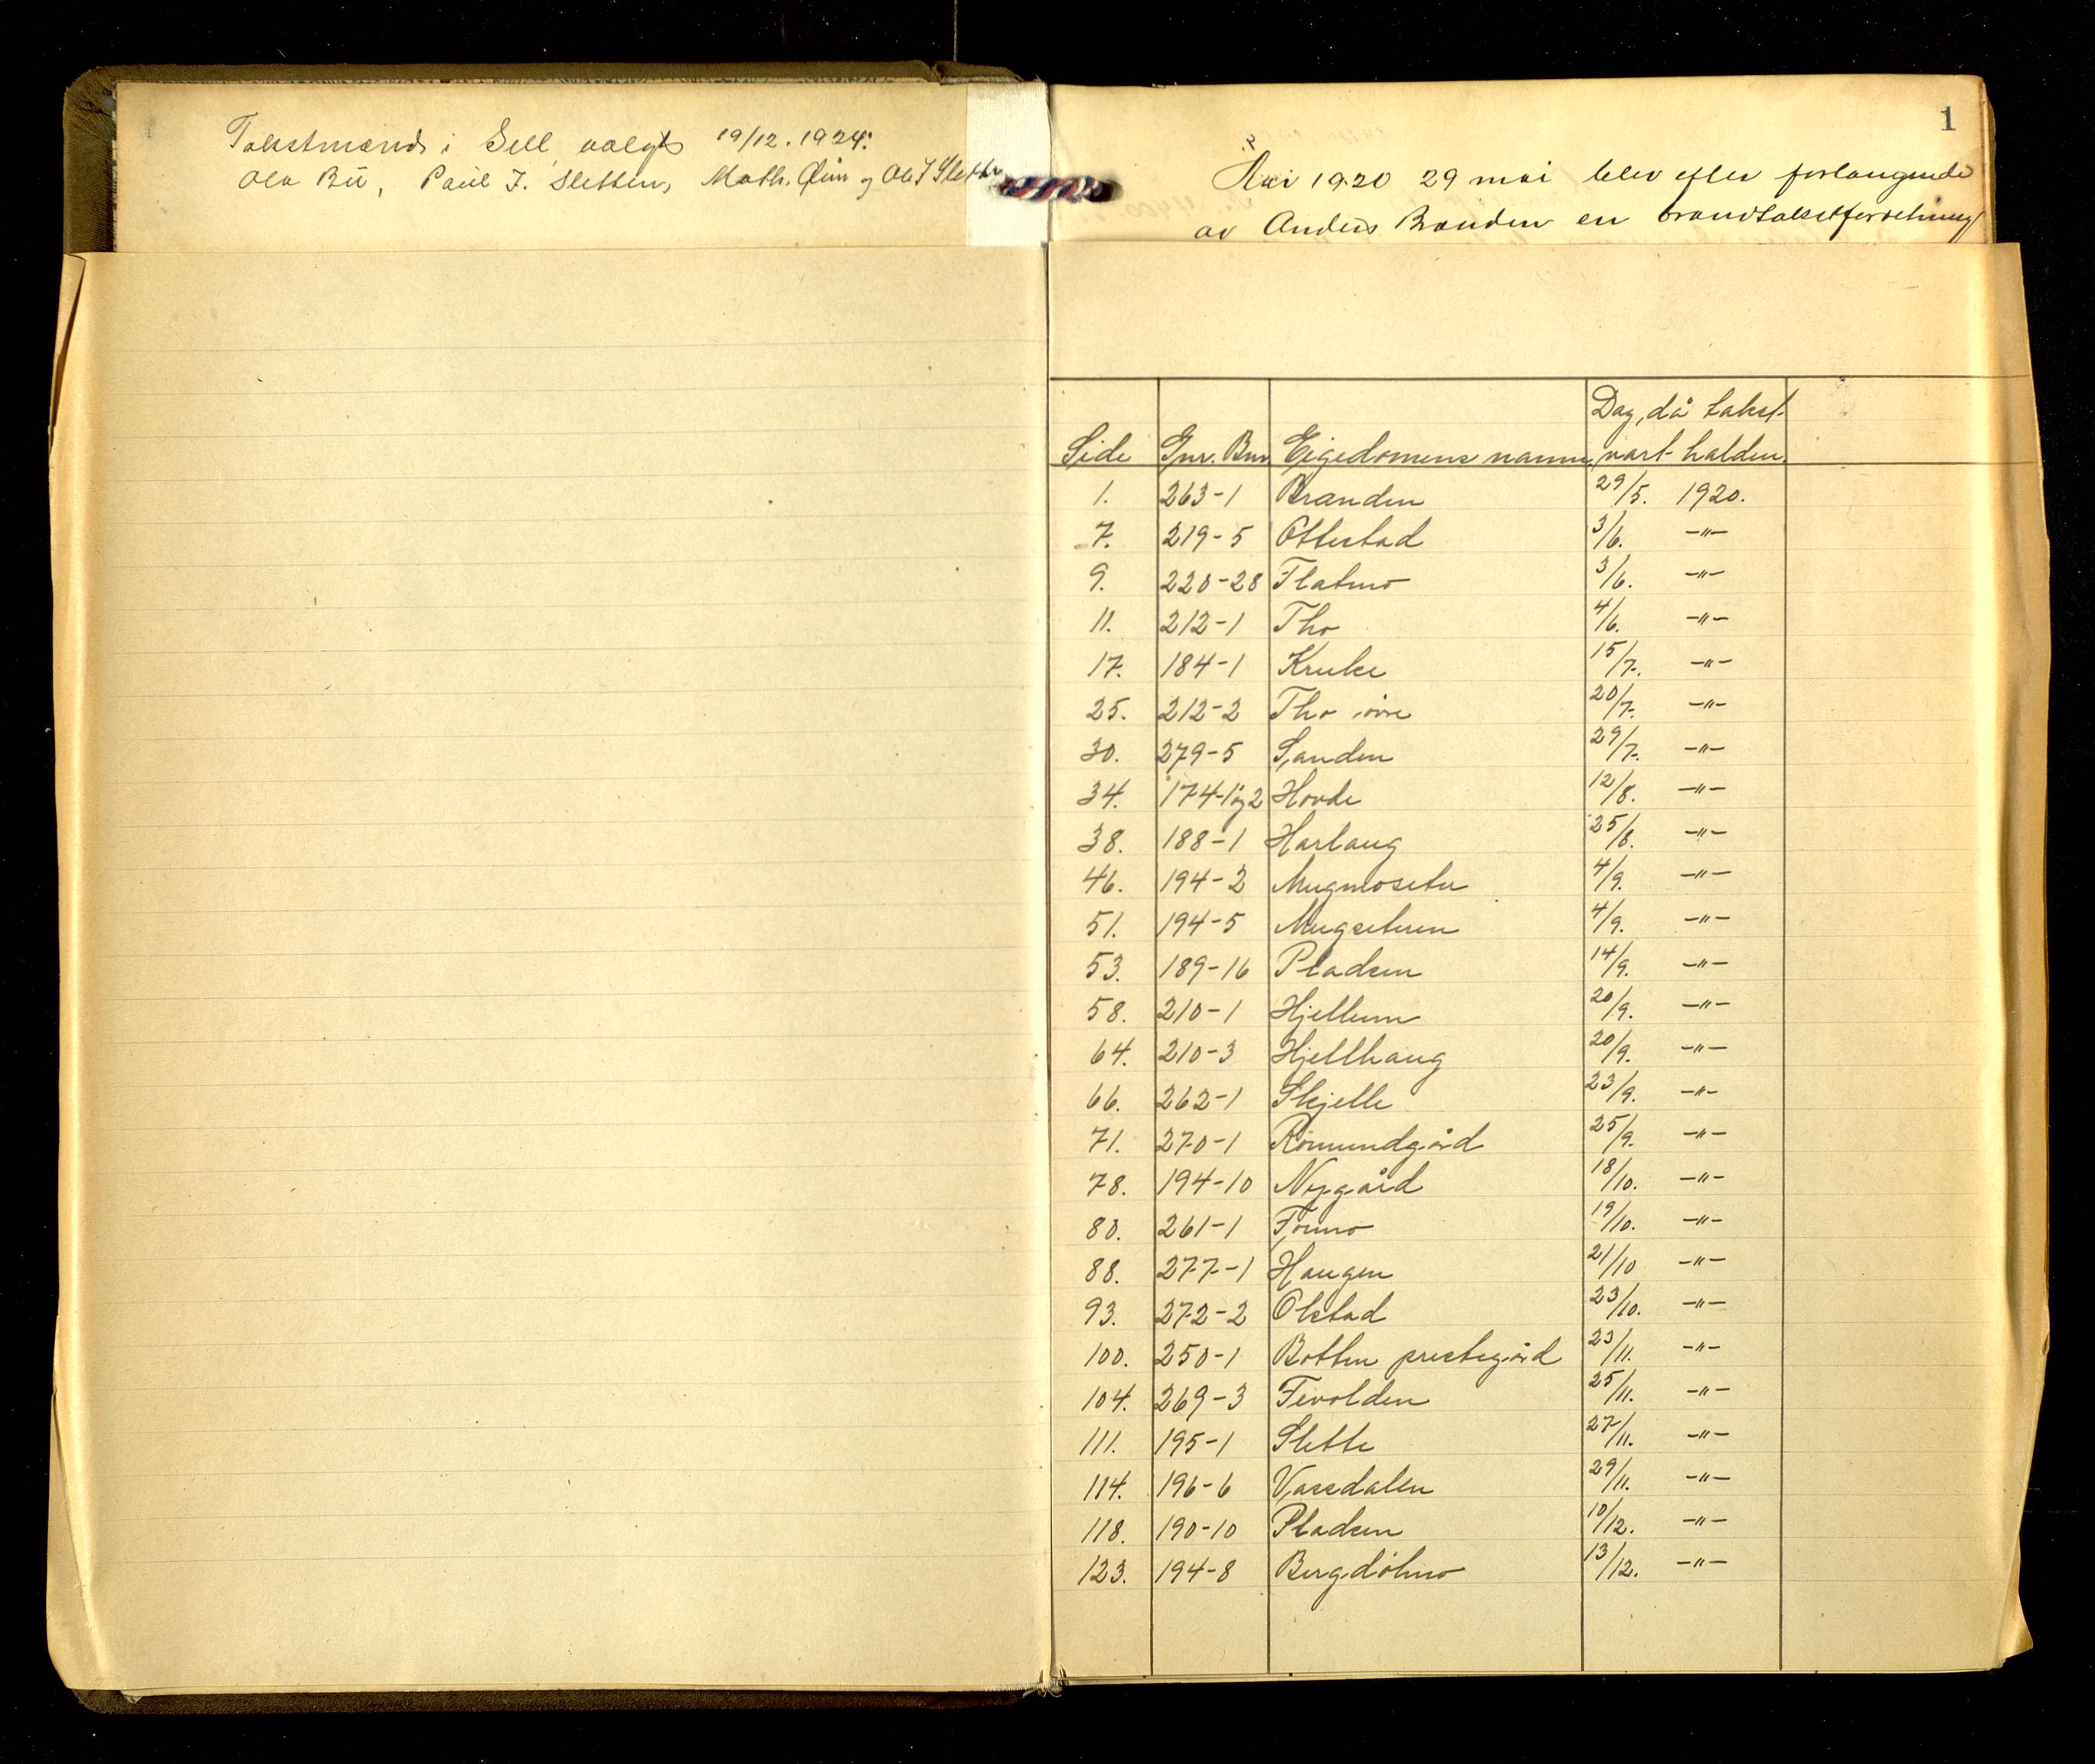 Takstmænd i Sell valgt 19/12. 1924:
Ola Bu, Paul J. Sletten, Math. Øien og Ole J Sletten
1
Aar 1920 29 mai blev efter forlangende
av Anders Branden en brandtakstforretning
Side Gnr. Bnr Eigedomens namn. Dag, då takst vart halden.
1. 263-1 Branden 29/5. 1920.
7. 219-5 Ottestad 3/6. -"-
9. 220-28 Flatmo 3/6. -"-
11. 212-1 Tho 4/6. -"-
17. 184-1 Kruke 15/7. -"-
25. 212-2 Tho övre 20/7. -"-
30. 279-5 Sanden 29/7. -"-
34. 174-1og2 Hovde 12/8. -"-
38. 188-1 Harlaug 25/8. -"-
46. 194-2 Mugmoseter 4/9. -"-
51. 194-5 Mugseteren 4/9. -"-
53. 189-16 Pladsen 14/9. -"-
58. 210-1 Hjellum 20/9. -"-
64. 210-3 Hjellhaug 20/9. -"-
66. 262-1 Skjelle 23/9. -"-
71. 270-1 Romundgård 25/9. -"-
78. 194-10 Nygård 18/10. -"-
80. 261-1 Formo 19/10. -"-
88. 277-1 Haugen 21/10 -"-
93. 272-2 Olstad 23/10. -"-
100. 250-1 Botten prestegård 23/11. -"-
104. 269-3 Tevolden 25/11. -"-
111. 195-1 Slette 27/11. -"-
114. 196-6 Vassdalen 29/11. -"-
118. 190-10 Pladsen 10/12. -"-
123. 194-8 Bergdölmo 13/12. -"-